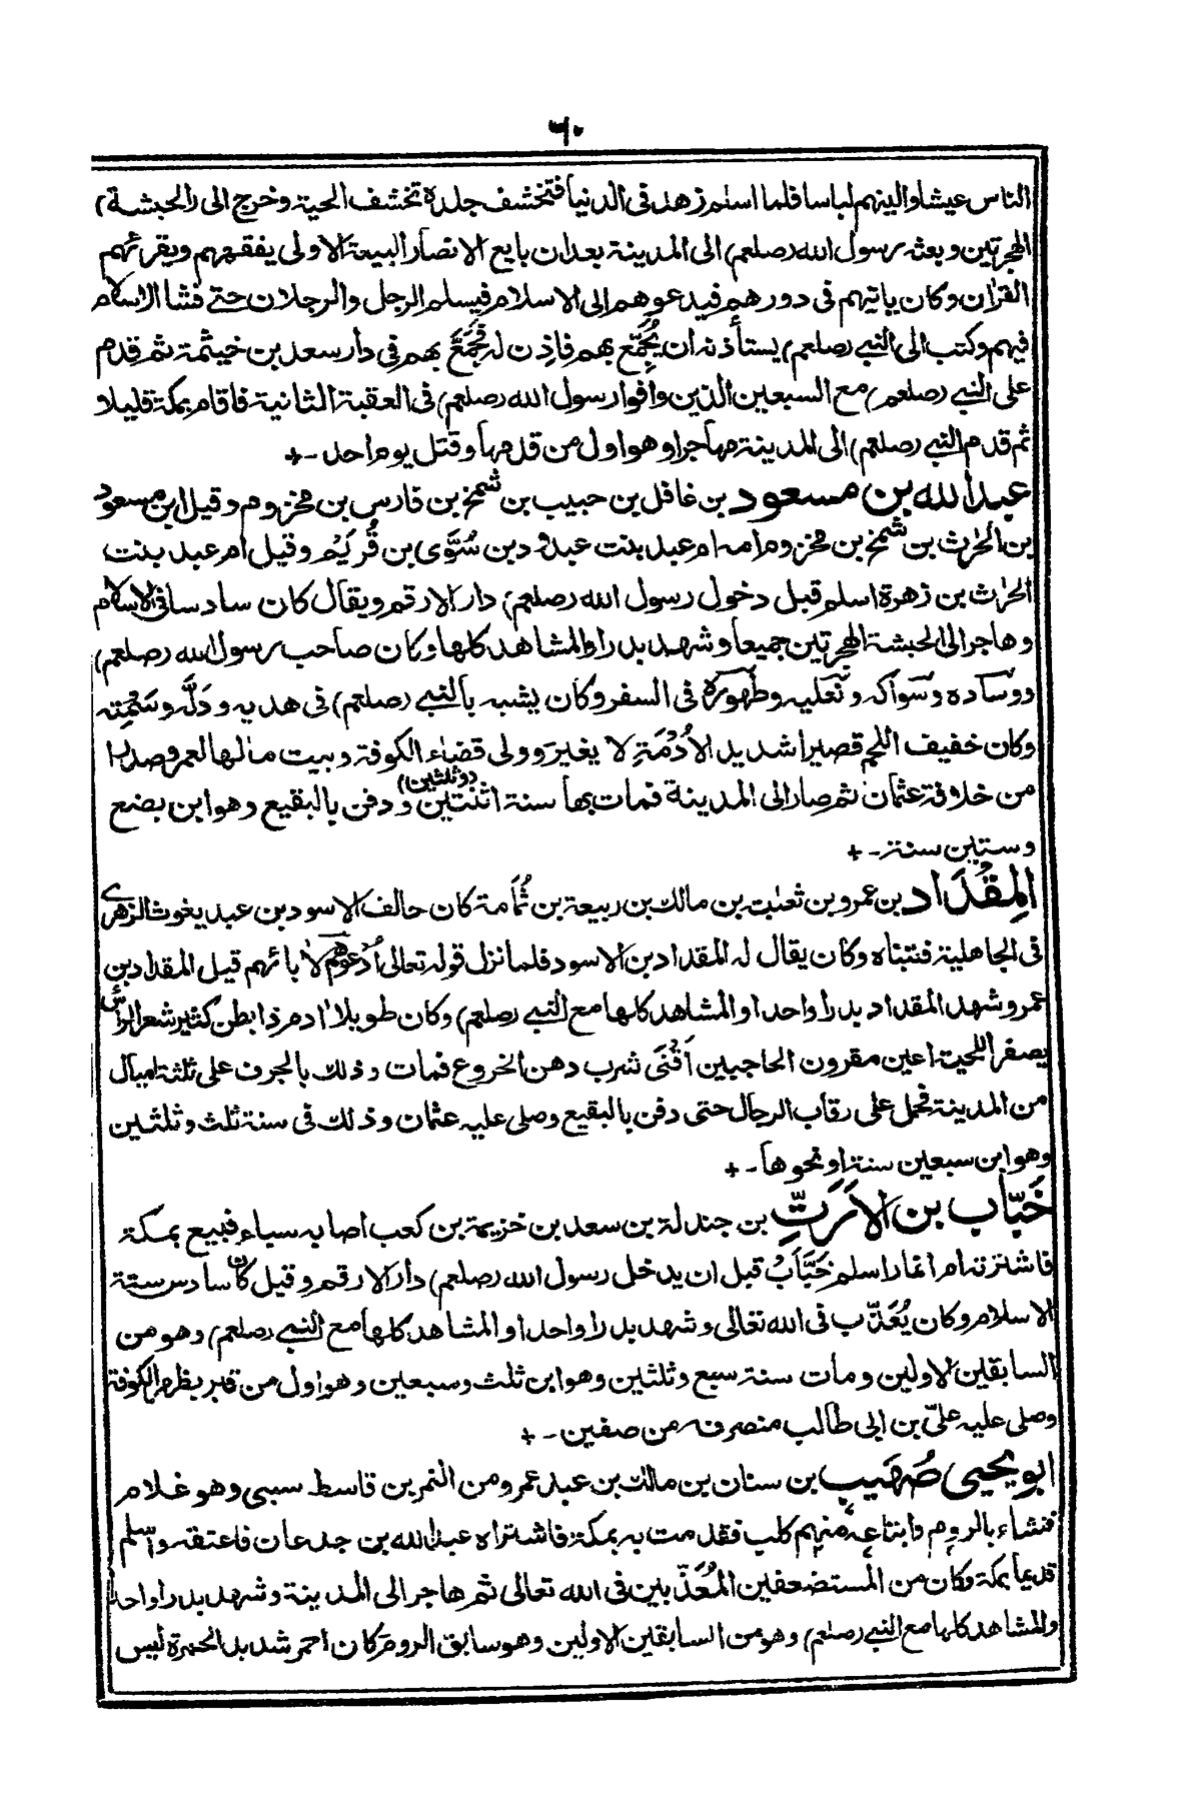 ٦٠
الناس عيشا والينهم لباسا فلما اسلم زهد فى الدنيا فتخشف جلده تخشف الحية وخرج الى (الحبشة)
الهجرتين وبعثه رسول الله (صلعم) الى المدينة بعد ان بايع الانصار البيعة الاولى يفقههم ويقرئهم
القرٰان وكان ياتيهم فى دورهم فيدعوهم الى الاسلام فيسلم الرجل والرجلان حتے فشا الاسلام
فيهم وكتب الى النبے (صلعم) يستأذنه ان يُجَمِّع بهم فاذِن له فجَمَّعَ بهم فى دار سعد بن خيثمة ثم قدم
على النبے (صلعم) مع السبعين الذين وافوا رسول الله (صلعم) فى العقبة الثانية فاقام بمكة قليلا
ثم قدم النبے (صلعم) الى المدينة مهاجرا وهو اول من قدمها وقتل يوم احد -+
عبد الله بن مسعود بن غافل بن حبيب بن شمخ بن فارس بن مخزوم وقيل ابن مسعود
بن الحٰرث بن شمخ بن مخزوم امه ام عبد بنت عبد ود بن سُوَّى بن قُرَيْم وقيل ام عبد بنت
الحٰرث بن زهرة اسلم قبل دخول رسول الله (صلعم) دار الارقم ويقال كان سادسا فى الاسلام
وهاجر الى الحبشة الهجرتين جميعا وشهد بدرا والمشاهد كلها وكان صاحب رسول الله (صلعم)
ووساده وسواكه ونعليه وطهوره فى السفر وكان يشبه بالنبے (صلعم) فى هديه ودَلّه وسَمْتِه
وكان خفيف اللحم قصيرا شديد الأُدْمَةِ لا يغير وولى قضاء الكوفة وبيت مالها لعمر وصدرا
من خلافة عثمان ثم صار الى المدينة فمات بها سنة اثنتين (وثلثين) ودفن بالبقيع وهو ابن بضع
وستين سنة -+
المِقْدَاد بن عمرو بن ثعلبت بن مالك بن ربيعة بن ثُمامة كان حالف الاسود بن عبد يغوث الزهرى
فى الجاهلية فتبناه وكان يقال له المقداد بن الاسود فلما نزل قوله تعالى اُدْعُوهُم لاٰبائهم قيل المقداد بن
عمرو شهد المقداد بدرا واحدا والمشاهد كلها مع النبے (صلعم) وكان طويلا اٰدم ذا بطن كثير شعر الرأس
يصفر اللحية اعين مقرون الحاجبين اَقْنَى شرب دهن الخروع فمات وذلك بالجرف على ثلثة اميال
من المدينة فحمل على رقاب الرجال حتى دفن بالبقيع وصلى عليه عثمان وذلك فى سنة ثلث وثلثين
وهو ابن سبعين سنة او نحوها -+
خَبّاب بن الاَرَتِّ بن جندلة بن سعد بن خزيمة بن كعب اصابه سباء فبيع بمكة
فاشترته ام انمار اسلم خَبَّابْ قبل ان يدخل رسول الله (صلعم) دار الارقم وقيل كان سادس ستة
الاسلام وكان يُعَذَّب فى الله تعالى وشهد بدرا واحدا والمشاهد كلها مع النبے (صلعم) وهو من
السابقين الاولين ومات سنة سبع وثلثين وهو ابن ثلث وسبعين وهو اول من قبر بظهر الكوفة
وصلى عليه علىّ بن ابى طالب منصرفه من صفين -+
ابو يحيى صُهَيب بن سنان بن مالك بن عبد عمرو من النمر بن قاسط سبى وهو غلام
فنشاء بالروم وابتاعه منهم كلب فقدمت به بمكة فاشتراه عبد الله بن جدعان فاعتقه واسلم
قديما بمكة وكان من المستضعفين المُعَذّبين فى الله تعالى ثم هاجر الى المدينة وشهد بدرا واحدا
والمشاهد كلها مع النبے (صلعم) وهو من السابقين الاولين وهو سابق الروم كان احمر شديد الحمرة ليس